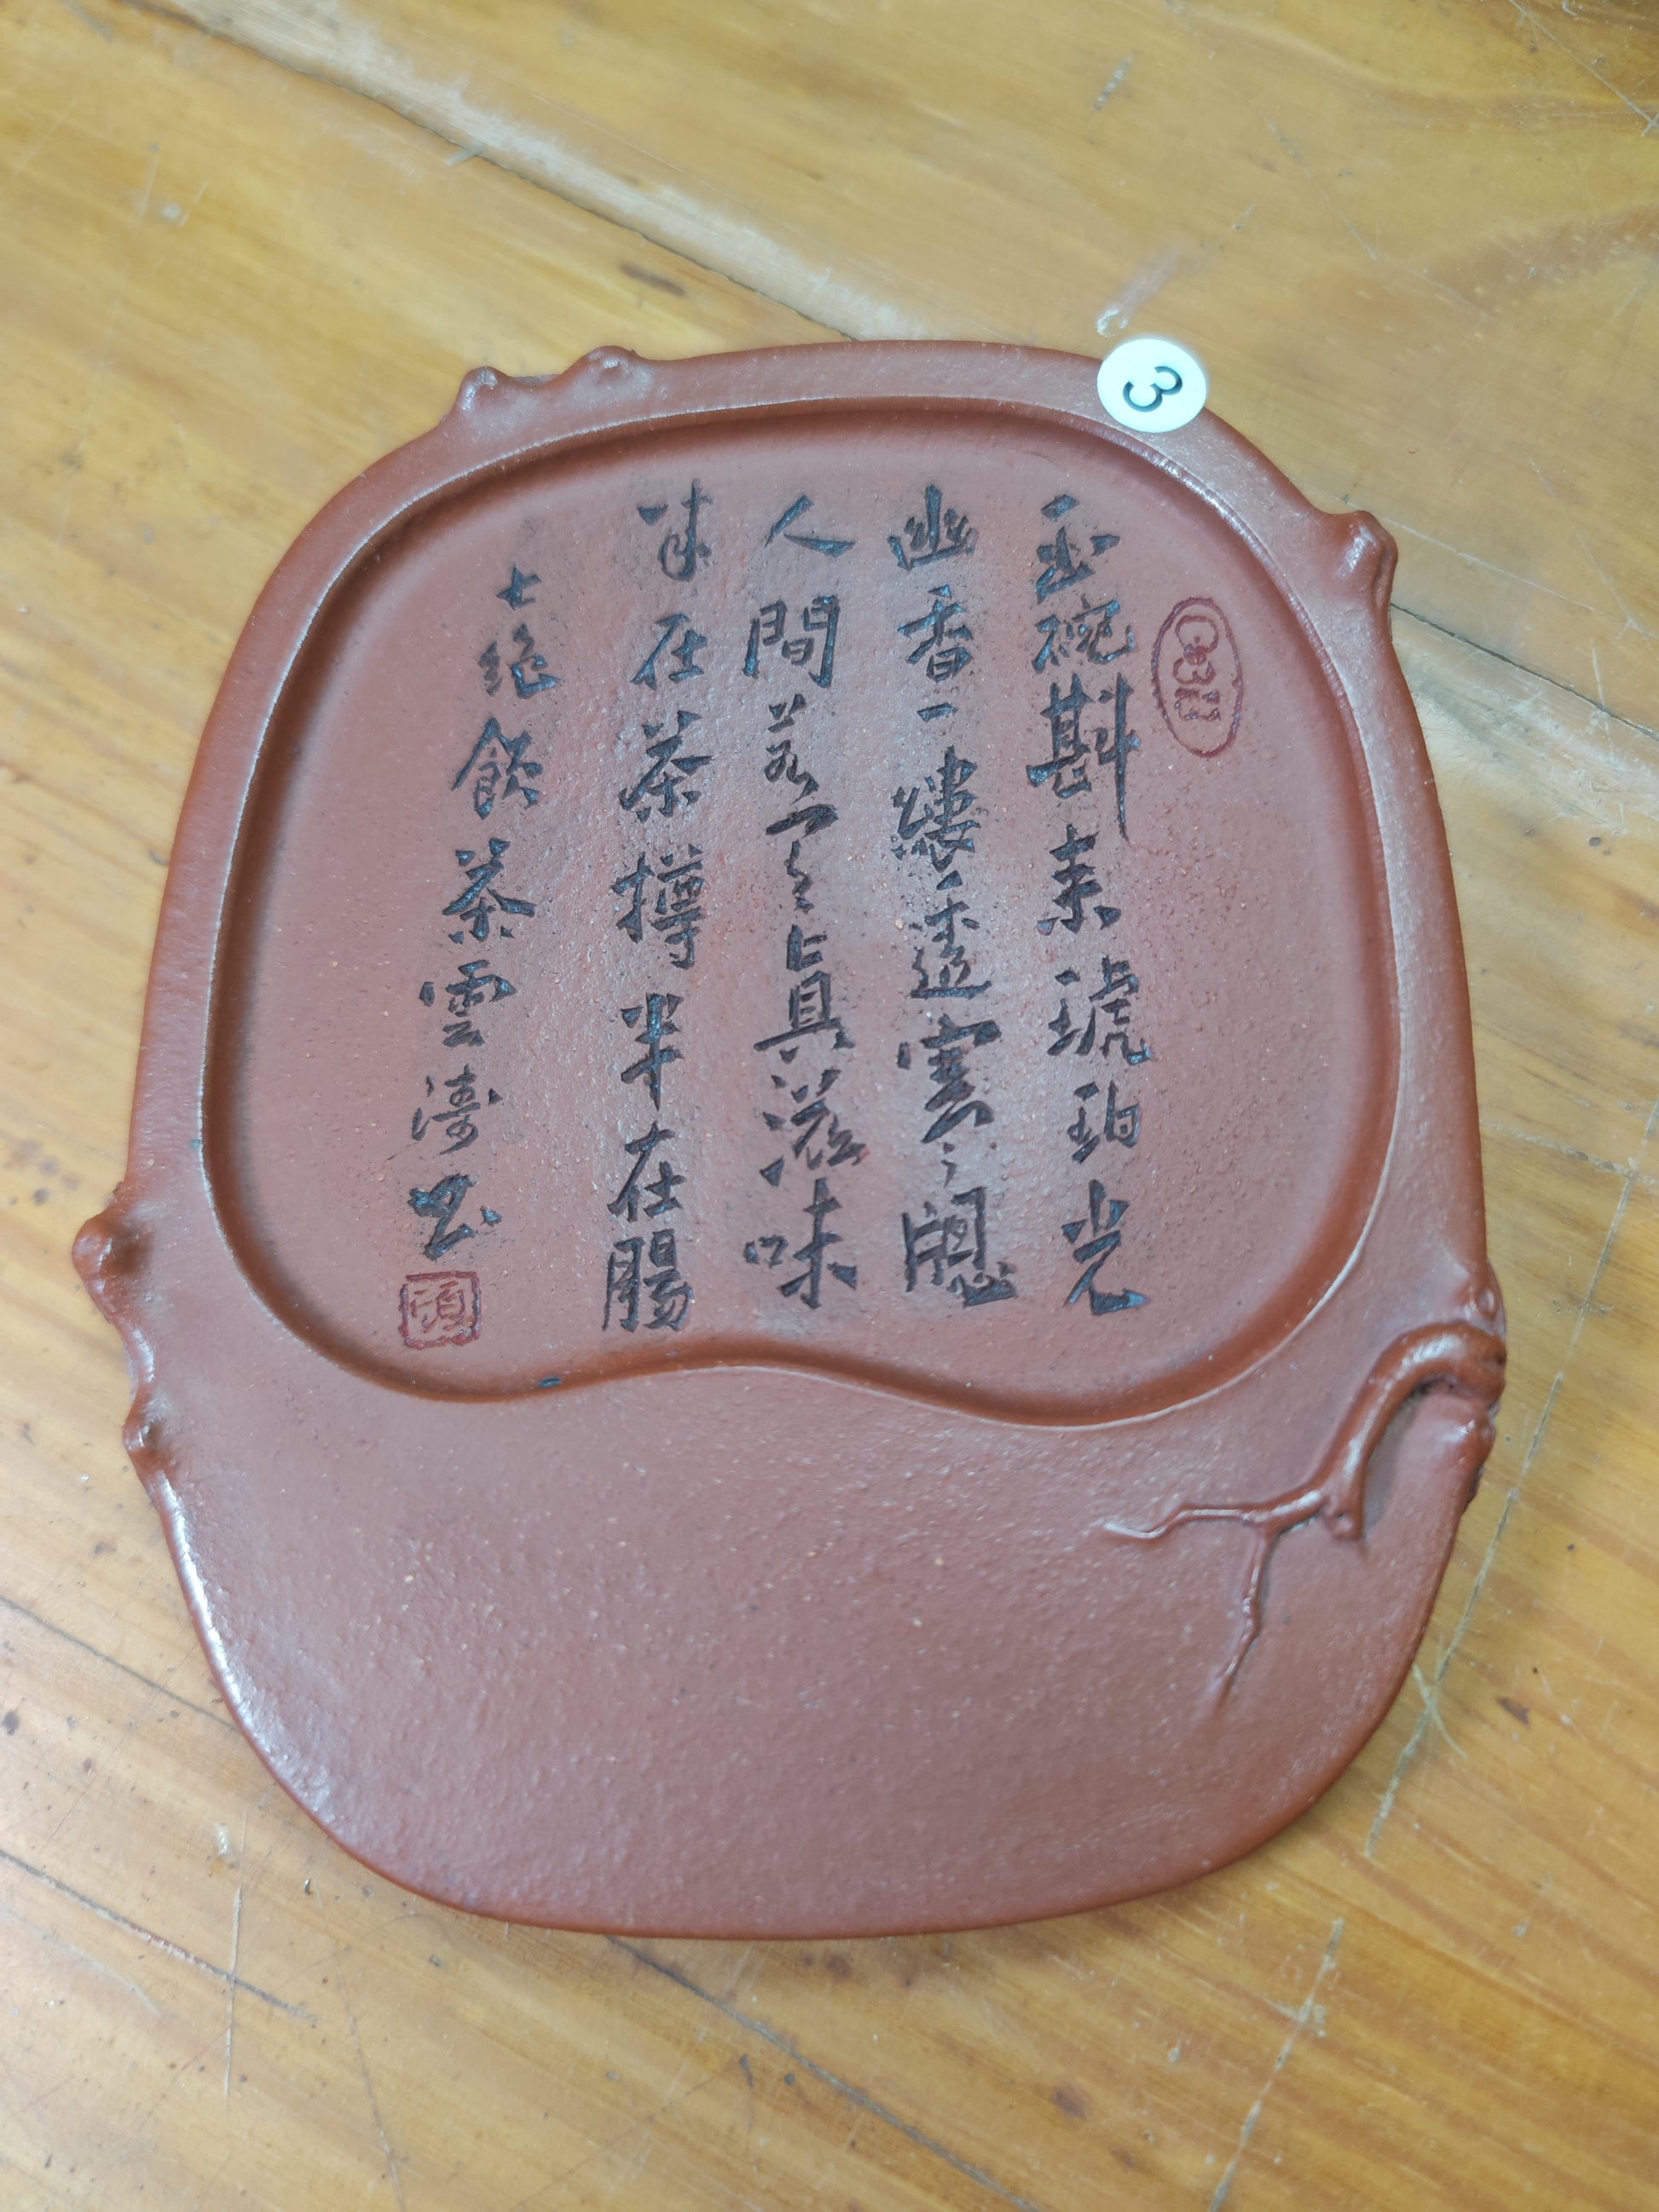 3
玉碗斟來琥珀光
幽香一縷透寒牕
人間若真滋味
半在茶樽半在腸
七絕飲茶雲濤書